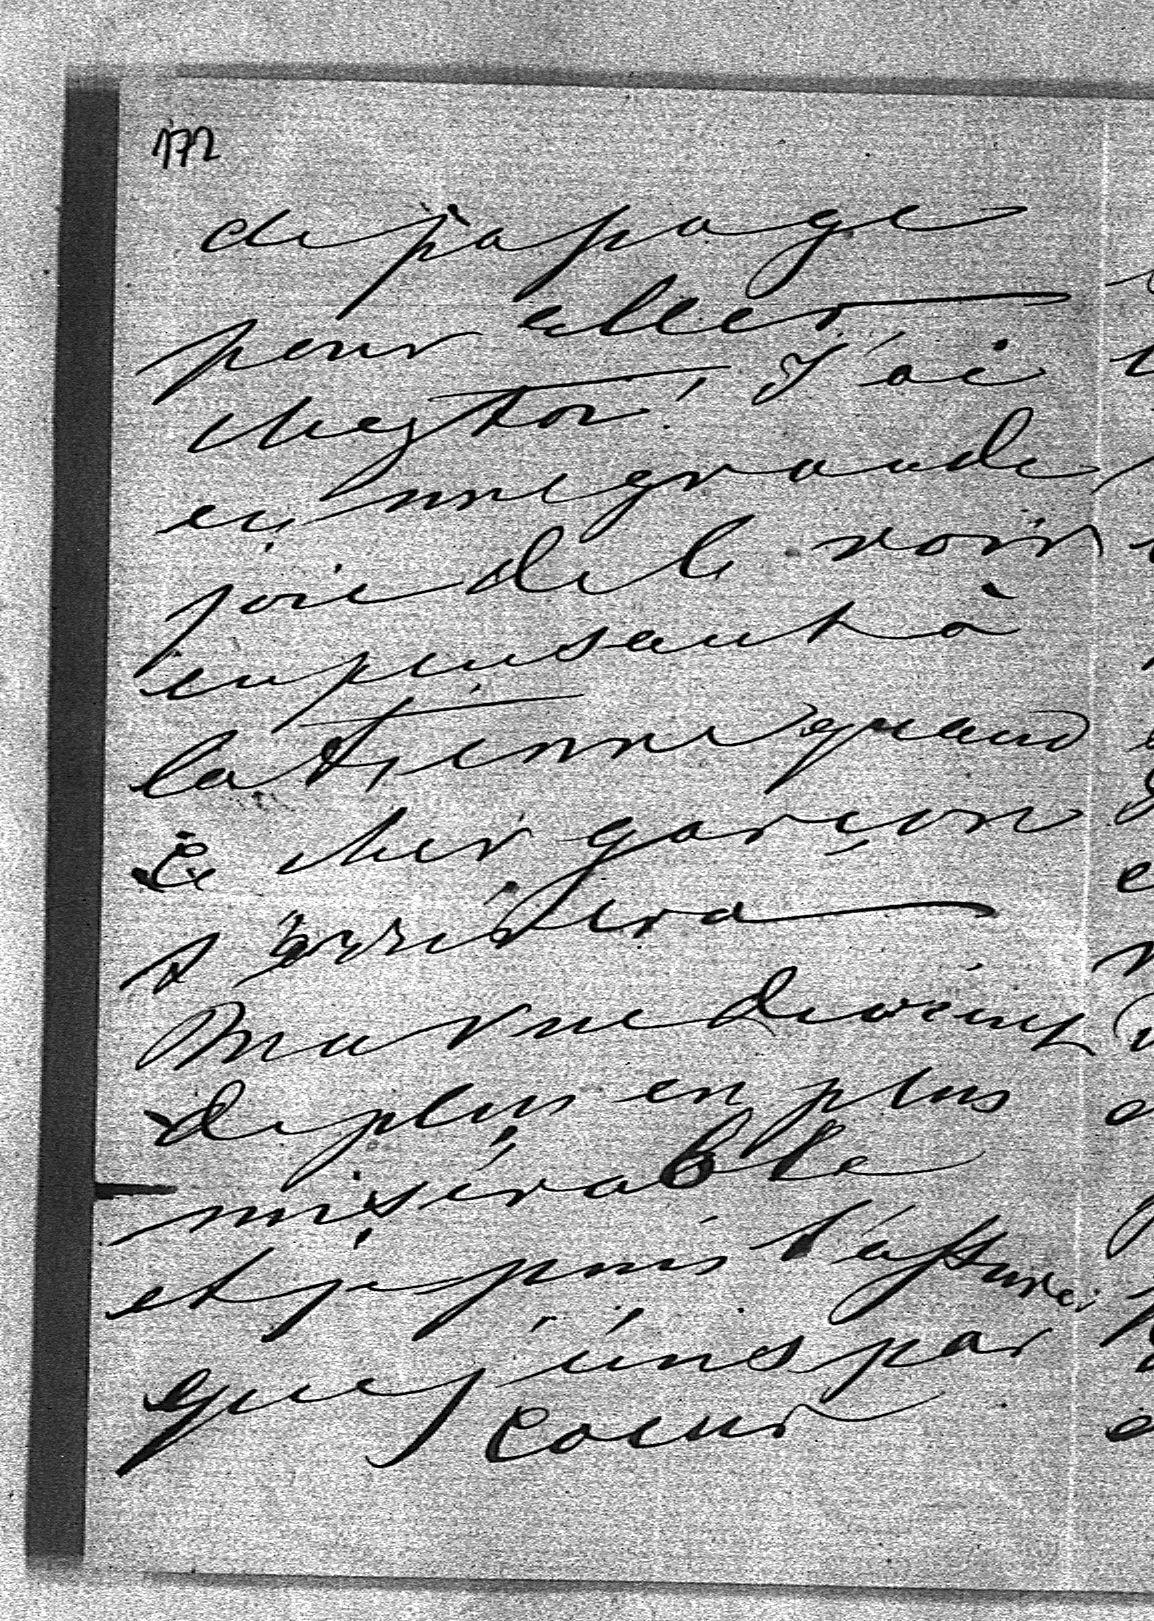 172
de passage
pour aller
chez toi. J'ai
eu une grande
joie de le voir
en pensant à
la tienne quand
ce cher garçon
t'arrivera
Ma vue devient
de plus en plus
misérable
et je puis t'assurer
que j'écris par
coeur